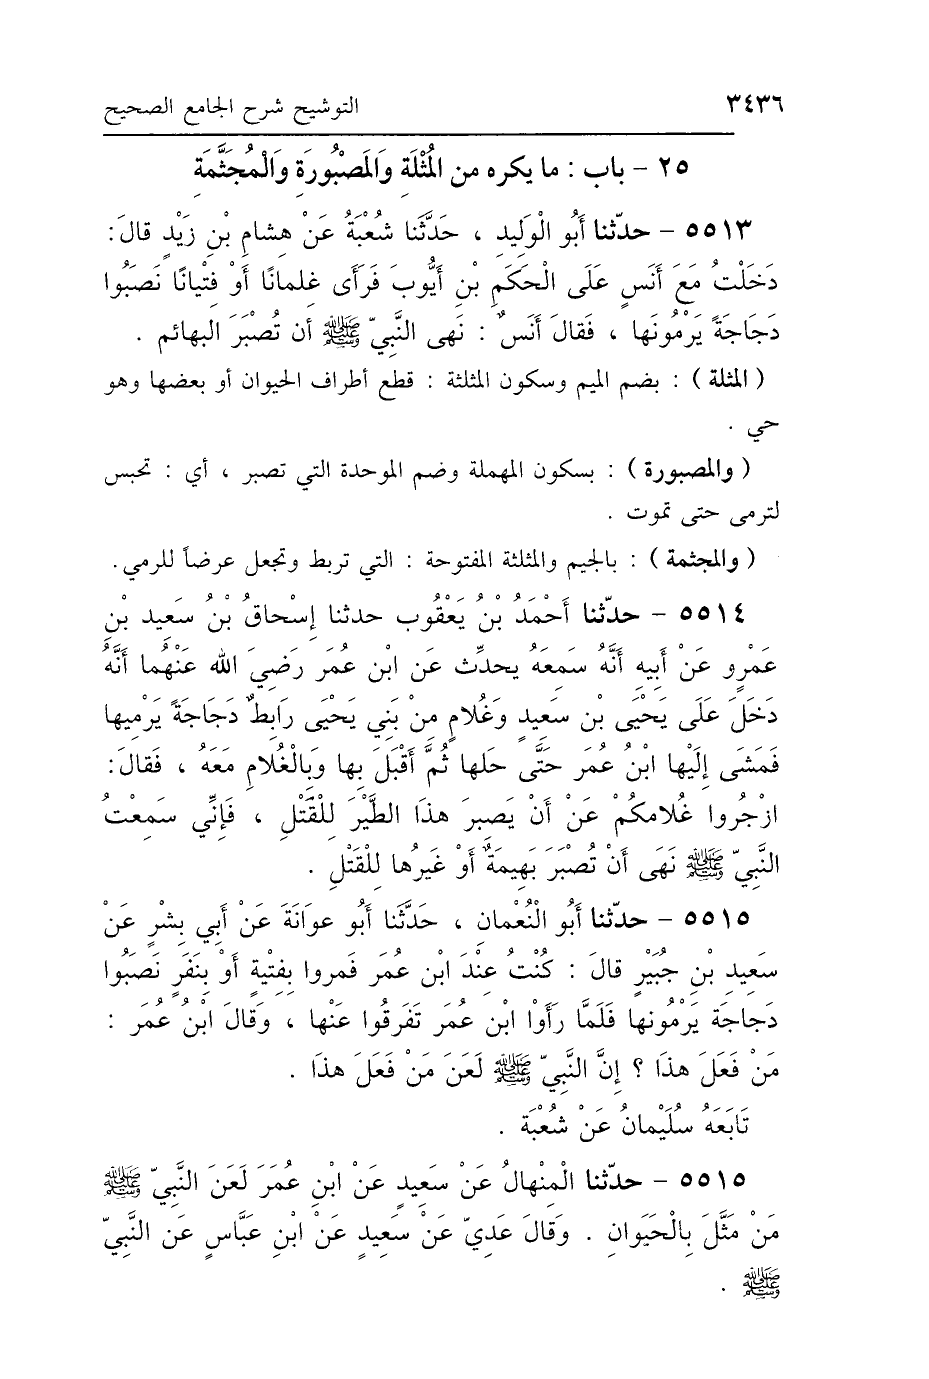 ٣٤٣٦ التوشيح شرح الجامع الصحيح
٢٥ - باب : ما يكره من المُثْلَةِ وَالمَصْبُورَةِ وَالْمُجَثَّمَةِ
٥٥١٣ - حدّثنا أَبُو الْوَلِيدِ ، حَدَّثَنا شُعْبَةُ عَنْ هِشامِ بْنِ زَيْدٍ قالَ :
دَخَلْتُ مَعَ أَنَسٍ عَلَى الْحَكَمِ بْنِ أَيُّوبَ فَرَأَى غِلمانًا أَوْ فِتْيانًا نَصَبُوا
دَجاجَةً يَرْمُونَها ، فَقالَ أَنَسٌ : نَهى النَّبِيّ ﷺ أن تُصْبَرَ البهائم .
( المثلة ) : بضم الميم وسكون المثلثة : قطع أطراف الحيوان أو بعضها وهو
حي .
( والمصبورة ) : بسكون المهملة وضم الموحدة التي تصبر ، أي : تحبس
لترمى حتى تموت .
( والمجثمة ) : بالجيم والمثلثة المفتوحة : التي تربط وتجعل عرضاً للرمي .
٥٥١٤ - حدّثنا أَحْمَدُ بْنُ يَعْقُوب حدثنا إسْحاقُ بْنُ سَعِيد بْنِ
عَمْرٍو عَنْ أبيه أَنَّهُ سَمِعَهُ يحدِّث عَن ابْن عُمَر رَضِيَ الله عَنْهُما أَنَّهُ
دَخَلَ عَلَى يَحْيَى بْن سَعِيدٍ وَغُلامٍ مِنْ بَنِي يَحْيَى رابِطٌ دَجَاجَةً يَرْمِيها
فَمَشَى إِلَيْها ابْنُ عُمَر حَتَّى حَلها ثُمَّ أَقْبَلَ بِها وَبِالْغُلامِ مَعَهُ ، فَقالَ :
ازْجُروا غُلامكُمْ عَنْ أَنْ يَصبِرَ هذَا الطَّيْرَ لِلْقَتْلِ ، فَإِنِّي سَمِعْتُ
النَّبِيّ ﷺ نَهَى أَنْ تُصْبَرَ بَهِيمَةٌ أَوْ غَيرُها لِلْقَتْلِ .
٥٥١٥ - حدّثنا أَبُو الْنُعْمانِ ، حَدَّثَنا أَبُو عوانَةَ عَنْ أَبي بِشْرٍ عَنْ
سَعِيدِ بْنِ جُبَيْرٍ قالَ : كُنْتُ عِنْدَ ابْن عُمَر فَمروا بِفِتْيةٍ أَوْ بِنَفَرٍ نَصَبُوا
دَجاجَة يَرْمُونها فَلَمَّا رَأَوْا ابْن عُمَرَ تَفَرقُوا عنْها ، وَقالَ ابْنُ عُمَر :
مَنْ فَعَلَ هذَا ؟ إِنَّ النَّبِيّ ﷺ لَعَنَ مَنْ فَعَلَ هذَا .
تَابَعَهُ سُلَيْمانُ عَنْ شُعْبَة .
٥٥١٥ - حدّثنا الْمِنْهالُ عَنْ سَعِيدٍ عَنْ ابْنِ عُمَرَ لَعَنَ النَّبِيّ ﷺ
مَنْ مَثَّلَ بِالْحَيَوانِ . وَقالَ عَدِيّ عَنْ سَعِيدٍ عَنْ ابْنِ عَبَّاسٍ عَن النَّبِيّ
ﷺ .